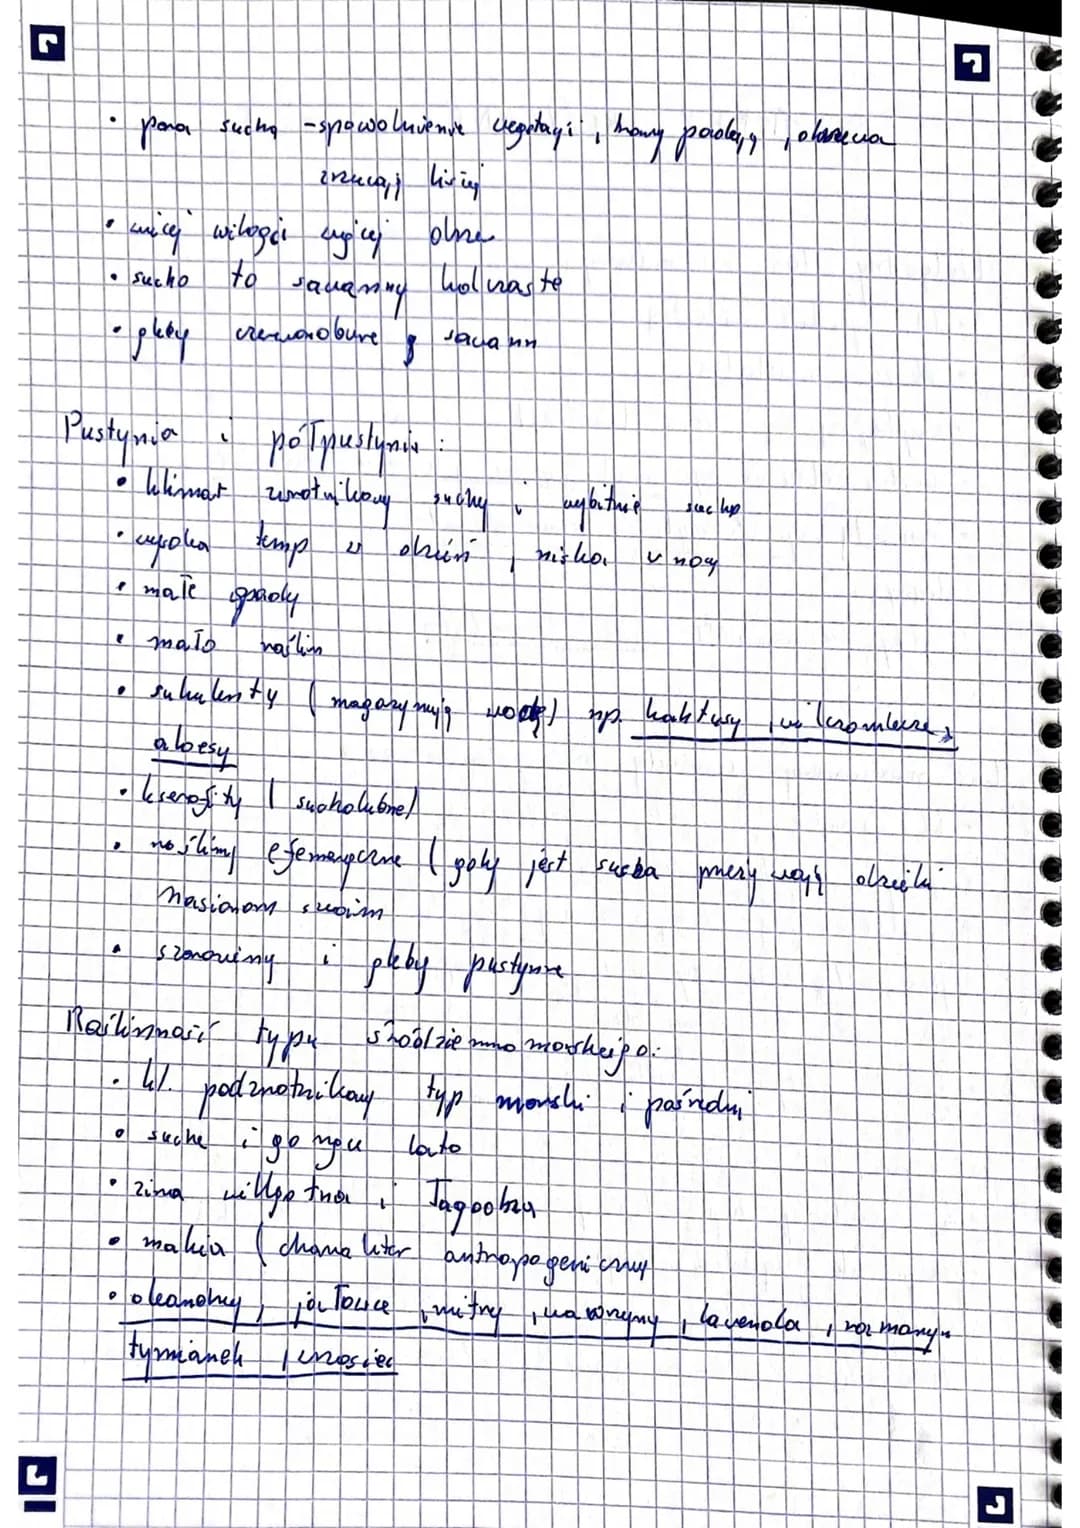 • pora sucha - spowolnienie wegetacji, trawy padają, drzewa
zrzucają liście
• więcej wilgoci więcej drze
• sucho to sawanny kolczaste
• gleby czerwonobure sawann
Pustynia i półpustynia:
• klimat zwrotnikowy suchy i wybitnie suchy
• wysoka temp w dzień, niska w nocy
• małe opady
• mało roślin
• sukulenty (magazynują wodę) np. kaktusy, wilczomlecze,
aloesy
• kserofity (sucholubne)
• rośliny efemeryczne (gdy jest susza przeżywają dzięki
nasionom swoim
• szaroziemy i gleby pustynne
Roślinność typu śródziemnomorskiego:
• kl. podzwrotnikowy typ morski i pośredni
• suche i gorące lato
• zima wilgotna i łagodna
• makia (charakter antropogeniczny
• oleandry, jałowce, mirty, wawrzyny, lawenda, rozmaryn
tymianek, wrzosiec